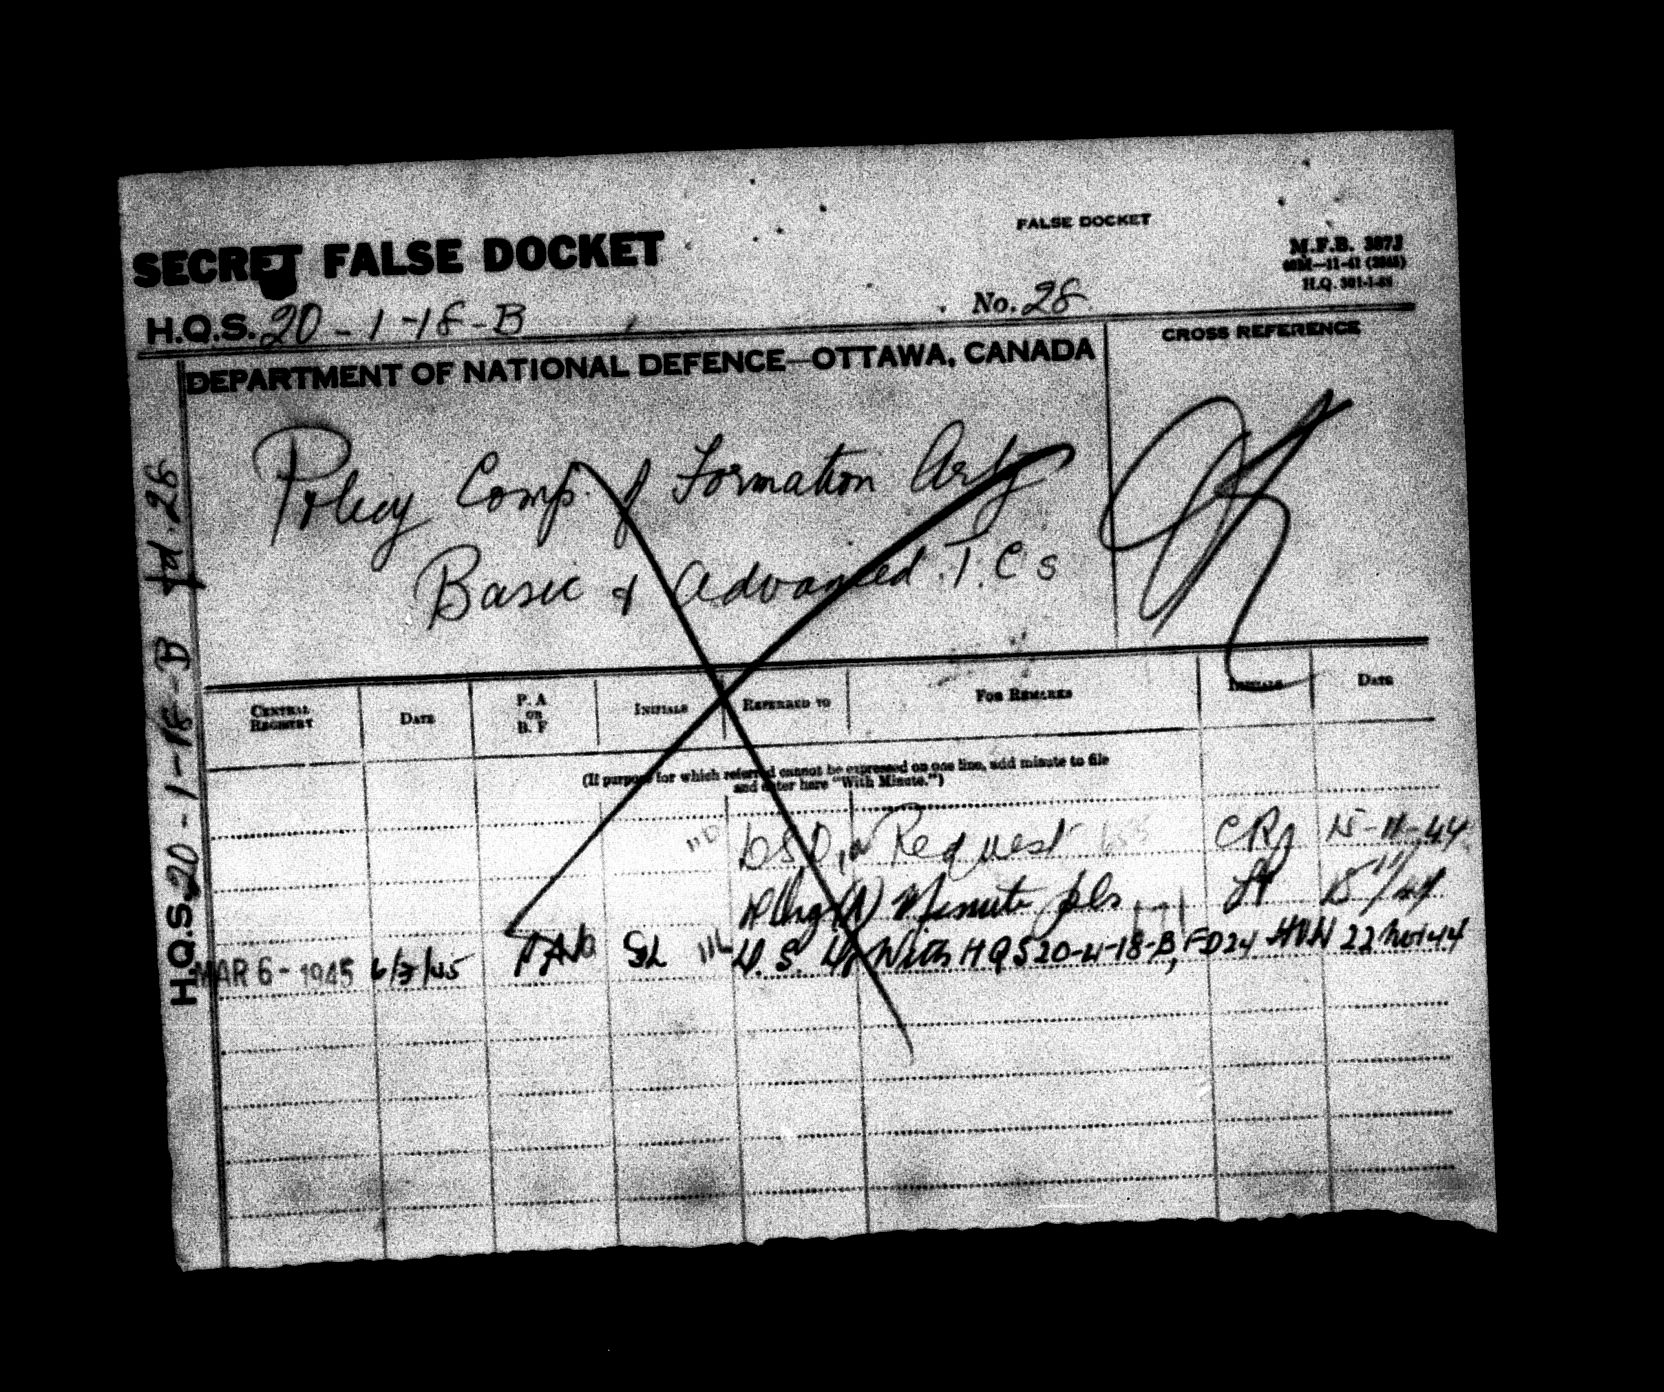 FALSE DOCKET
SECRET FALSE DOCKET
M.F.B. 307J
H.Q.S. 20-1-18-B
No. 28
DEPARTMENT OF NATIONAL DEFENCE—OTTAWA, CANADA
CROSS REFERENCE
Policy Comp. of Formation Arty
Basic & Advanced T.C's
H.Q.S. 20-1-18-B fd. 28
CENTRAL REGISTRY
DATE
P. A OR B. F
INITIALS
REFERRED TO
FOR REMARKS
INITIALS
DATE
(If purpose for which referred cannot be expressed on one line, add minute to file
and enter here "With Minute.")
Request 15-11-44
Minute pls
MAR 6 - 1945 6/3/45 PA SL With HQS 20-4-18-B, FD 24 22 Nov 44